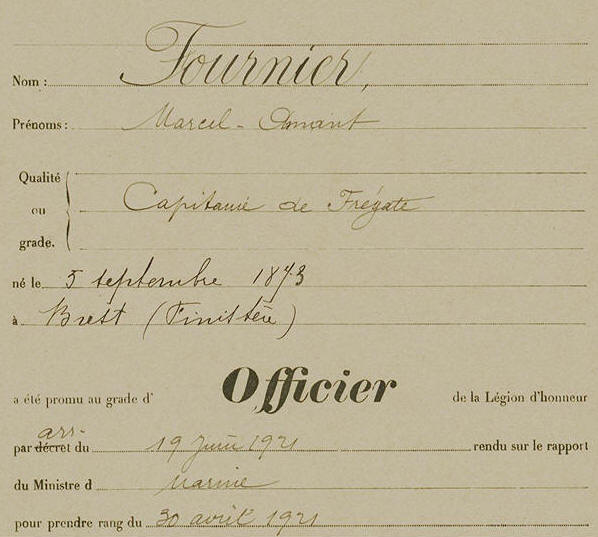 Nom : Fournier,
Prénoms : Marcel - Amant
Qualité
ou
grade.
Capitaine de Frégate
né le 5 septembre 1873
à Brest (Finistère)
a été promu au grade d' Officier de la Légion d'honneur
arr.
par décret du 19 Juin 1921 rendu sur le rapport
du Ministre d Marine
pour prendre rang du 30 avril 1921